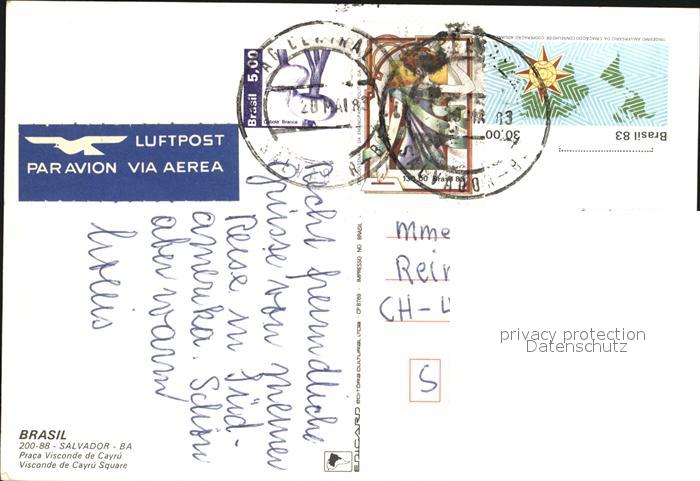 LUFTPOST
PAR AVION VIA AEREA
Brasil 5,00
Cebola Branca
AG CENTRAL
20 MAI 83
130,00 Brasil 83
83
SALVADOR - BA
TRIGÉSIMO ANIVERSÁRIO DA CRIAÇÃO DO CONSELHO DE COOPERAÇÃO ADUANEIRA
30,00
Brasil 83
Recht freundliche
Grüsse von meiner
Reise in Süd-
amerika. Schön
aber warm
Mme
Rei
CH-4
S
privacy protection
Datenschutz
EDICARD EDITORA CULTURAL LTDA. - CP 8769 - IMPRESSO NO BRASIL
BRASIL
200-88 - SALVADOR - BA
Praça Visconde de Cayrú
Visconde de Cayrú Square